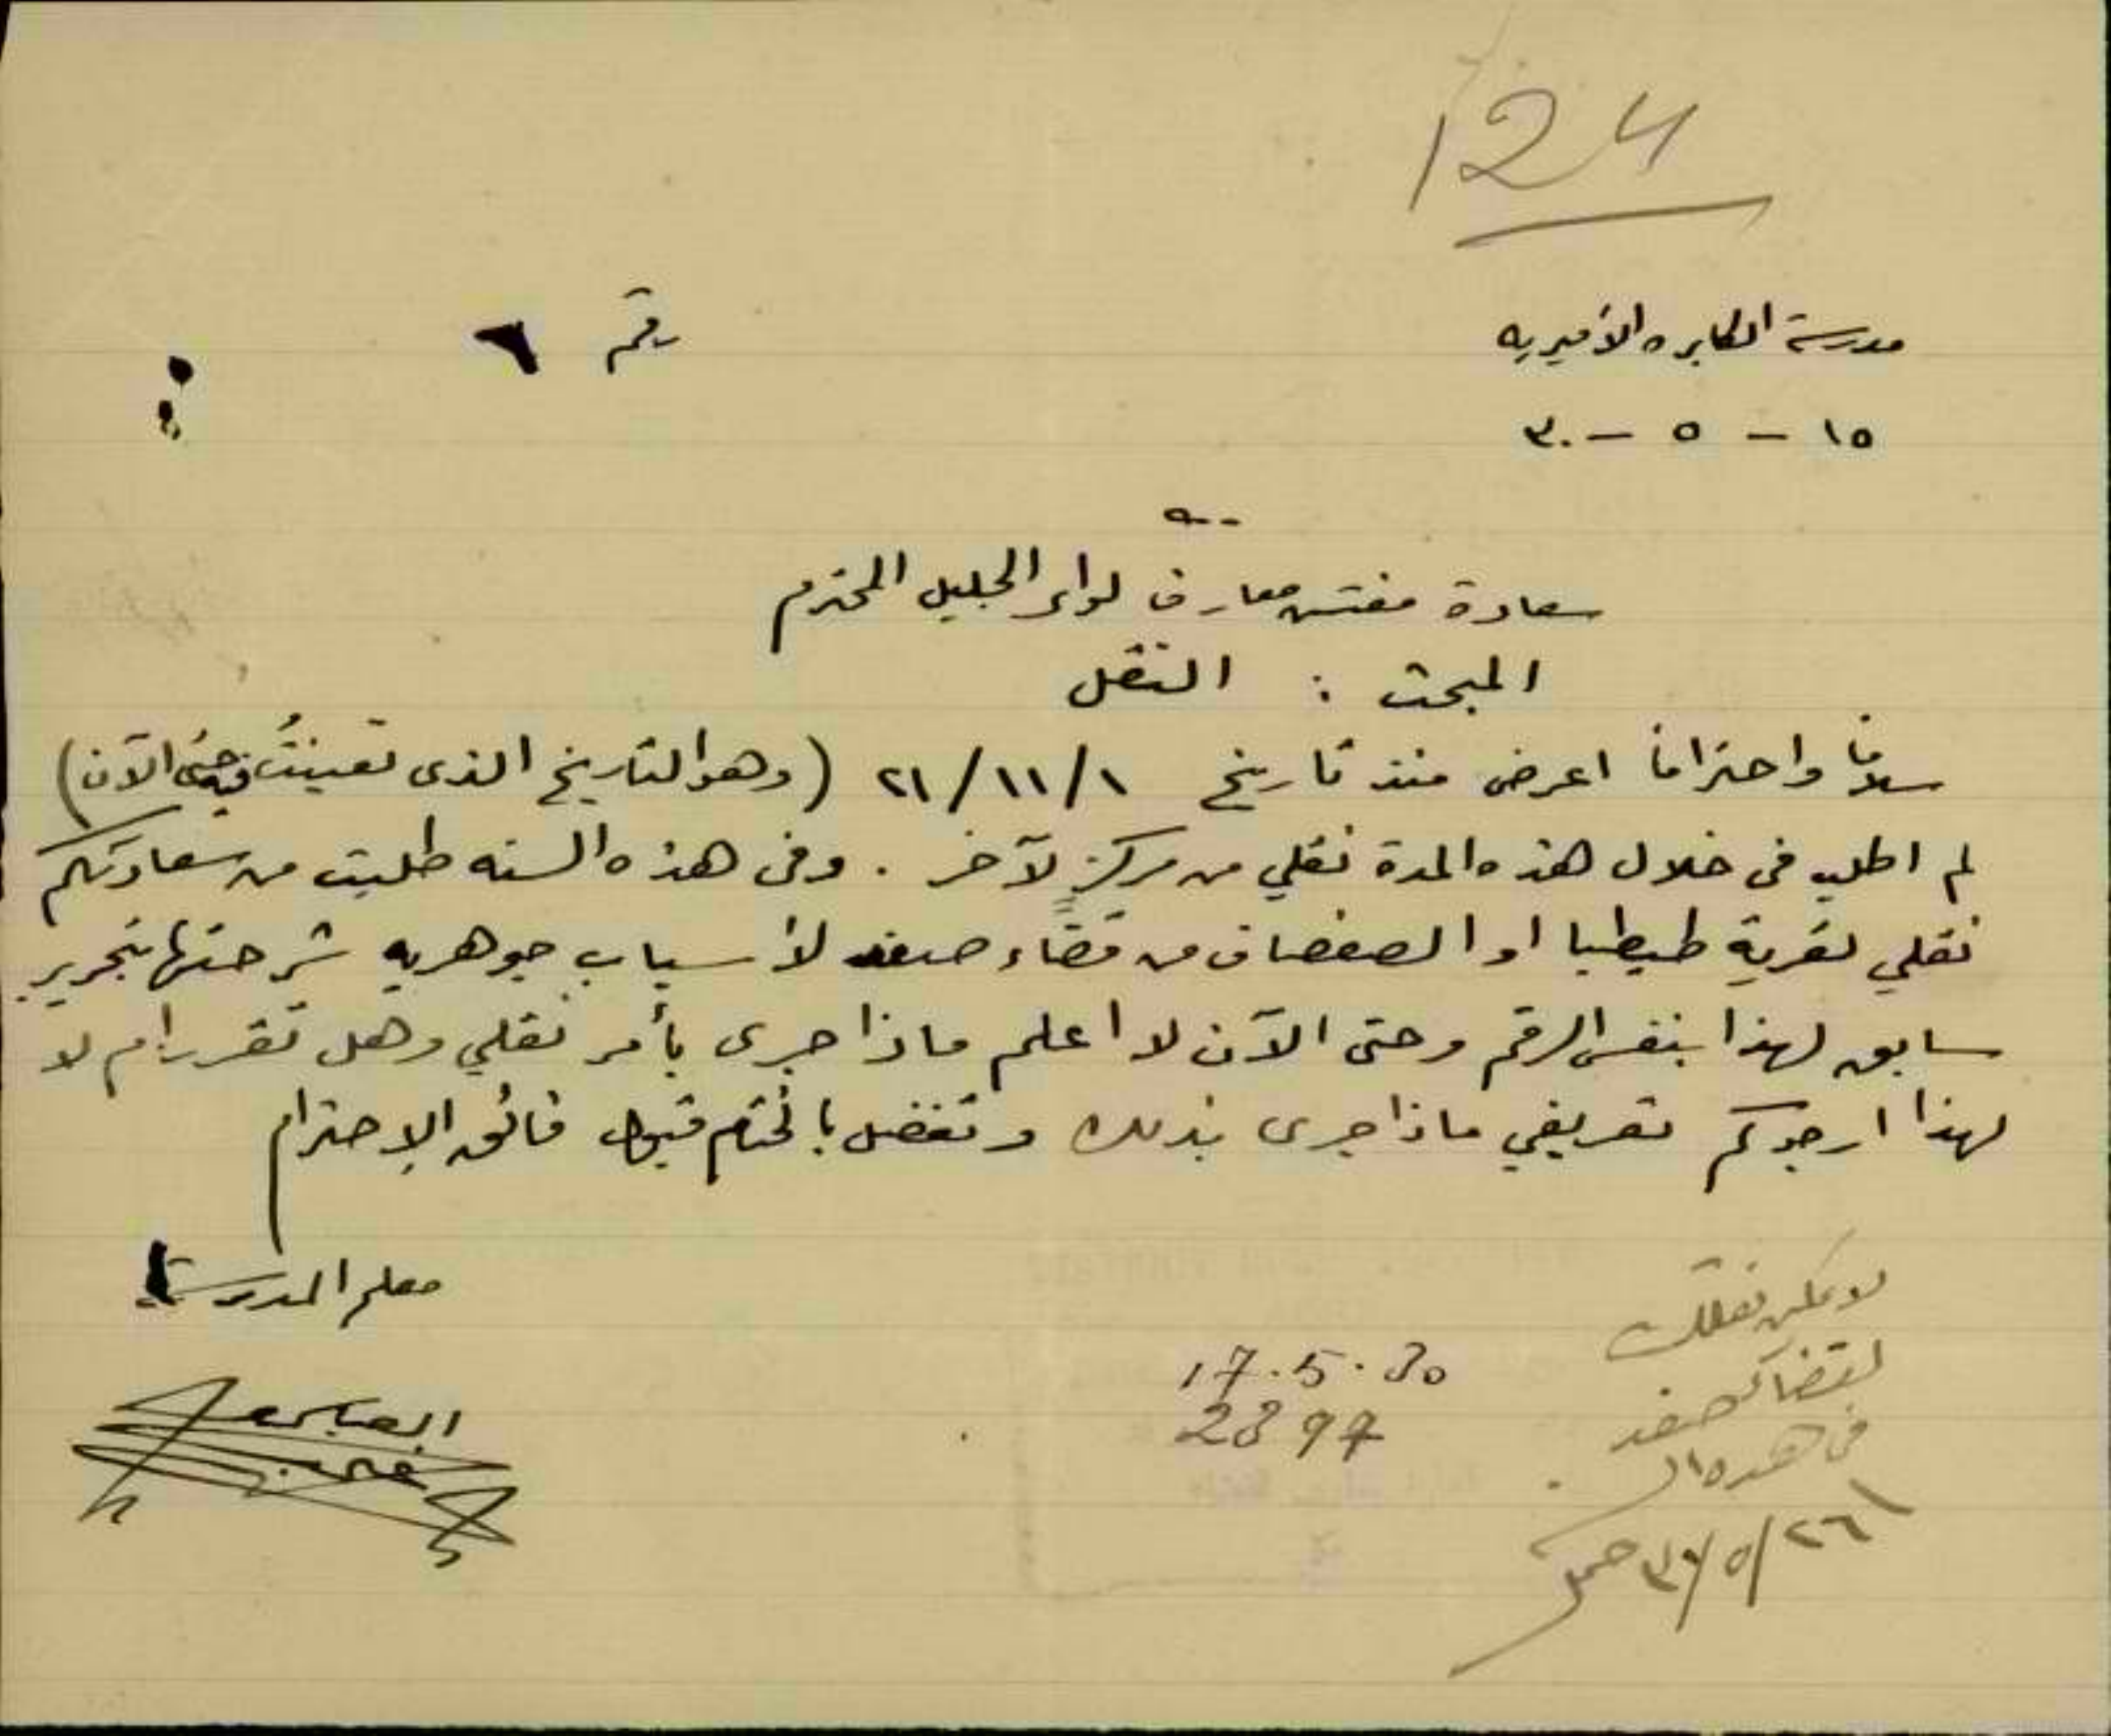 124
مدرسة الكابره الأميريه
رقم ٦
١٥ - ٥ - ٣٠
سعادة مفتش معارف لواء الجليل المحترم
المبحث : النقل
سلاماً واحتراماً اعرض منذ تاريخ ١/١١/٢١ (وهو التاريخ الذى تعينتُ فيه حتى الآن)
لم اطلب فى خلال هذه المدة نقلي من مركزٍ لآخر . وفى هذه السنه طلبت من سعادتكم
نقلي لقرية طيطبا او الصفصاف من قضاء صفد لأسباب جوهريه شرحتها بتحرير
سابق لهذا بنفس الرقم وحتى الآن لا اعلم ماذا جرى بأمر نقلي وهل تقرر ام لا
لهذا ارجوكم تعريفي ماذا جرى بذلك وتفضل بالختام قبول فائق الإحترام
معلم المدرسة
لا يمكن نقلك
لقضاء صفد
فى هذه
17.5.30
2897
٢٦/٥/٣٠